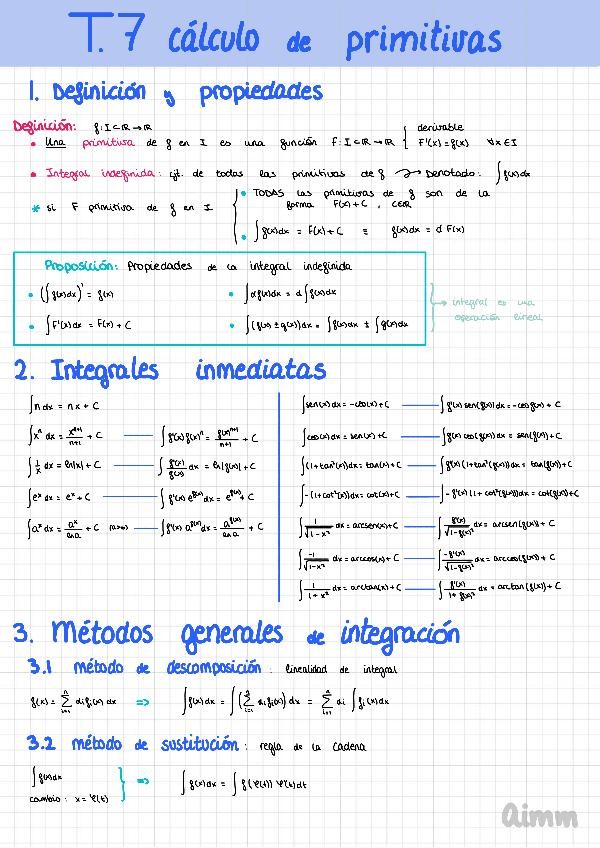 T.7 cálculo de primitivas
1. Definición y propiedades
Definición: f: I⊂ℝ → ℝ
• Una primitiva de f en I es una función F: I⊂ℝ → ℝ { derivable
F'(x) = f(x) ∀x∈I
• Integral indefinida: cjt. de todas las primitivas de f ⤳ Denotado: ∫f(x)dx
* si F primitiva de f en I
• TODAS las primitivas de f son de la
forma F(x)+C, C∈ℝ
• ∫f(x)dx = F(x) + C ≡ f(x)dx = d F(x)
Proposición: Propiedades de la integral indefinida
• (∫f(x)dx)' = f(x) • ∫αf(x)dx = α∫f(x)dx
• ∫F'(x)dx = F(x) + C • ∫(f(x) ± g(x))dx = ∫f(x)dx ± ∫g(x)dx
→ integral es una
operación lineal
2. Integrales inmediatas
∫n dx = nx + C
∫xⁿ dx = xⁿ⁺¹/n+1 + C — ∫f'(x) f(x)ⁿ = f(x)ⁿ⁺¹/n+1 + C
∫1/x dx = ln|x| + C — ∫f'(x)/f(x) dx = ln|f(x)| + C
∫eˣ dx = eˣ + C — ∫f'(x) e^f(x) dx = e^f(x) + C
∫aˣ dx = aˣ/ln a + C (a>0) — ∫f'(x) a^f(x) dx = a^f(x)/ln a + C
∫sen(x)dx = -cos(x)+C — ∫f'(x) sen(f(x))dx = -cos f(x) + C
∫cos(x)dx = sen(x)+C — ∫f'(x) cos(f(x))dx = sen(f(x)) + C
∫(1+tan²(x))dx = tan(x)+C — ∫f'(x)(1+tan²(f(x)))dx = tan(f(x))+C
∫-(1+cot²(x))dx = cot(x)+C — ∫-f'(x)(1+cot²(f(x)))dx = cot(f(x))+C
∫1/√1-x² dx = arcsen(x)+C — ∫f'(x)/√1-f(x)² dx = arcsen(f(x)) + C
∫-1/√1-x² dx = arccos(x)+C — ∫-f'(x)/√1-f(x)² dx = arccos(f(x)) + C
∫1/1+x² dx = arctan(x)+C — ∫f'(x)/1+f(x)² dx = arctan(f(x)) + C
3. Métodos generales de integración
3.1 método de descomposición: linealidad de integral
f(x) = Σⁿᵢ₌₁ αᵢfᵢ(x) dx => ∫f(x)dx = ∫(Σⁿᵢ₌₁ αᵢfᵢ(x)) dx = Σⁿᵢ₌₁ αᵢ ∫fᵢ(x)dx
3.2 método de sustitución: regla de la cadena
∫f(x)dx
cambio: x = φ(t)
=> ∫f(x)dx = ∫f(φ(t)) φ'(t)dt
aimm